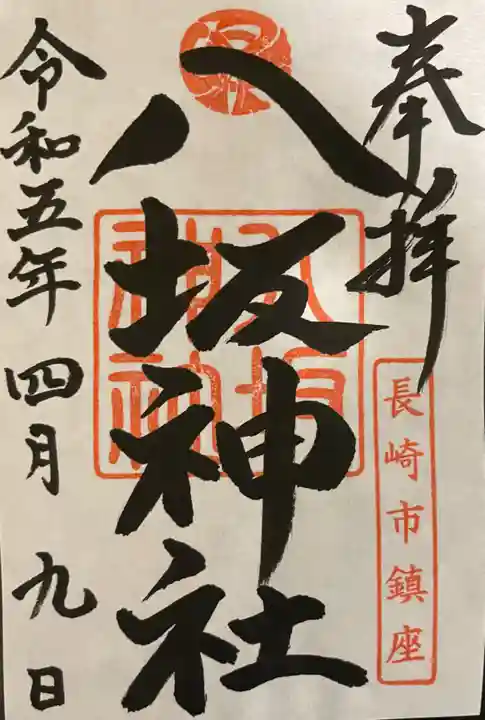 奉拝
長崎市鎮座
八坂神社
八坂
神社
令和五年四月九日